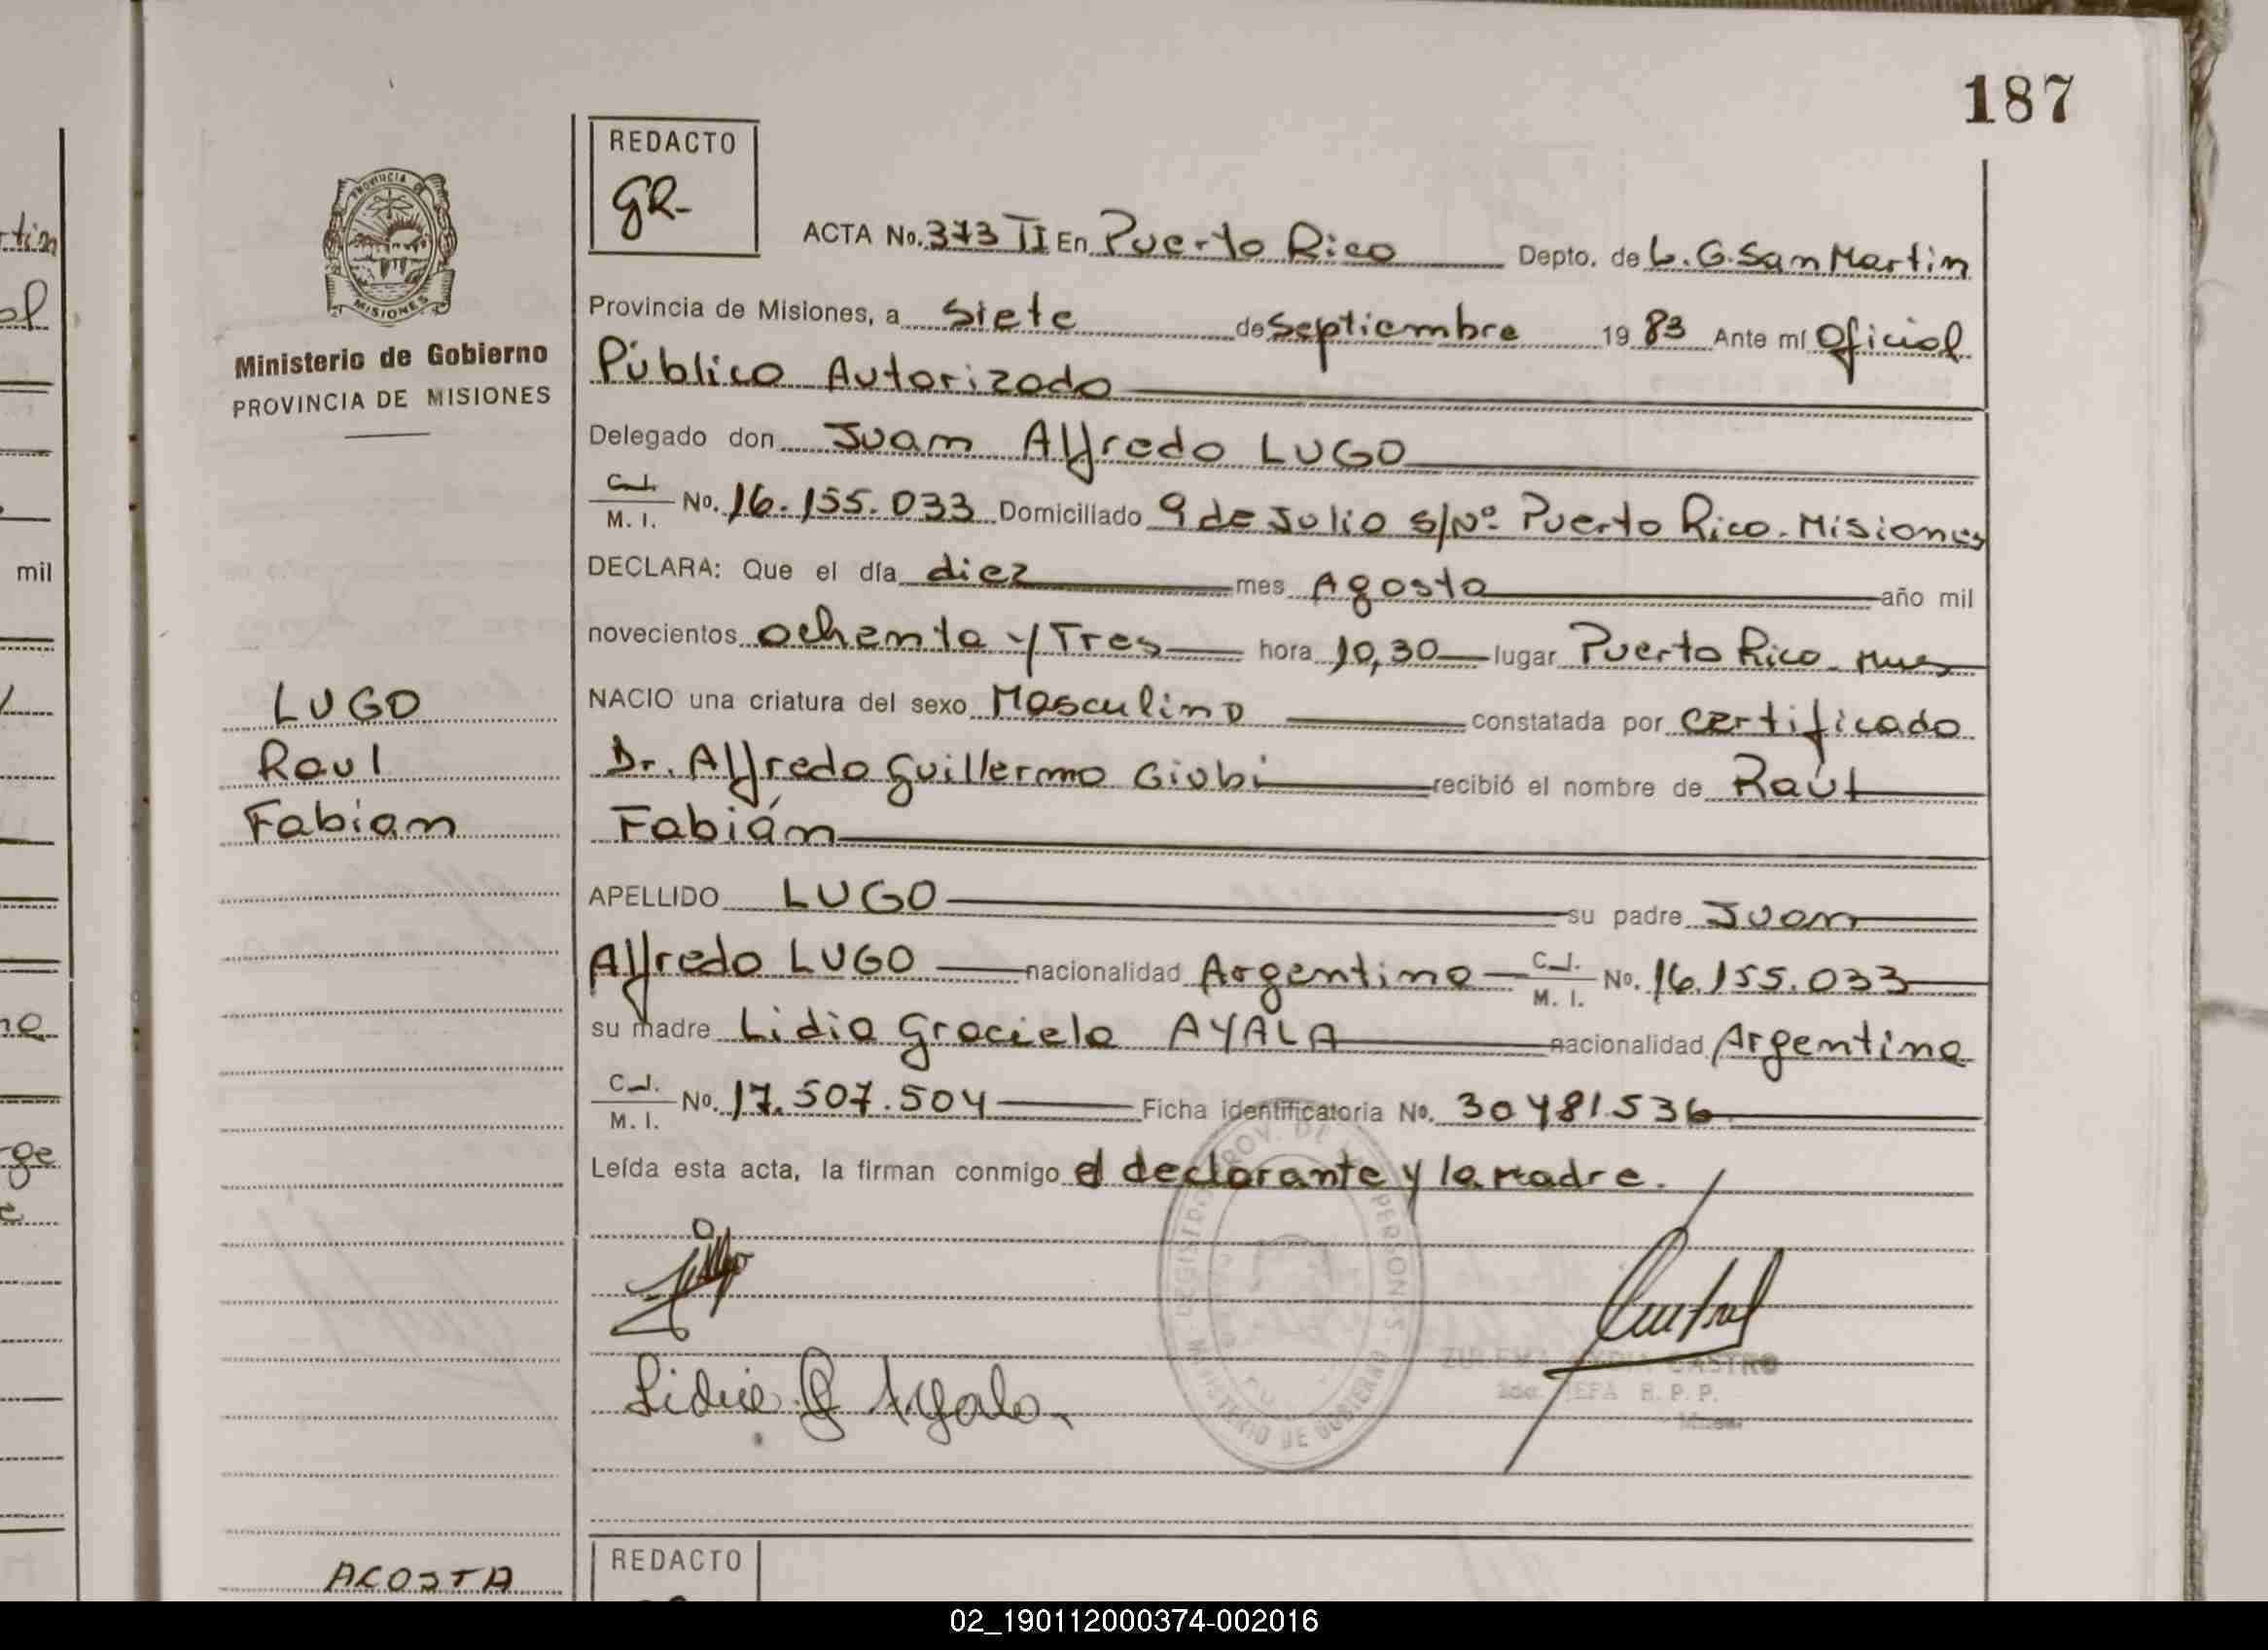 187
REDACTO
gR-
PROVINCIA DE
MISIONES
Ministerio de Gobierno
PROVINCIA DE MISIONES
ACTA No. 373 II En Puerto Rico Depto. de L.G. San Martin
Provincia de Misiones, a siete de septiembre 19 83 Ante mí Oficial
Público Autorizado
Delegado don Juan Alfredo LUGO
C.I. / M. I. No. 16.155.033 Domiciliado 9 de Julio s/Nº Puerto Rico. Misiones
DECLARA: Que el día diez mes Agosto año mil
novecientos ochenta y Tres hora 10,30 lugar Puerto Rico
NACIO una criatura del sexo Masculino constatada por certificado
Dr. Alfredo Guillermo Giubi recibió el nombre de Raúl
Fabián
LUGO
Raul
Fabian
APELLIDO LUGO su padre Juan
Alfredo LUGO nacionalidad Argentina C.I. / M. I. No. 16.155.033
su madre Lidia Graciela AYALA nacionalidad Argentina
C.I. / M. I. No. 17.507.504 Ficha identificatoria No. 30481536
Leída esta acta, la firman conmigo el declarante y la Madre.
Lidia G Ayala
MINISTERIO DE GOBIERNO
CASTRO
JEFA R. P. P.
ACOSTA
REDACTO
tin
al
mil
ge
02_190112000374-002016